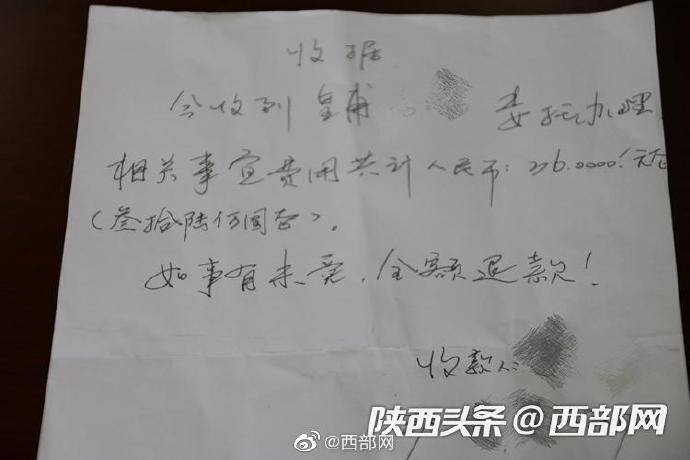 收据
今收到皇甫 委托办理
相关事宜费用共计人民币:36.0000元整
(叁拾陆万圆整)。
如事有未竟,全额退款!
收款人:
陕西头条@西部网
@西部网